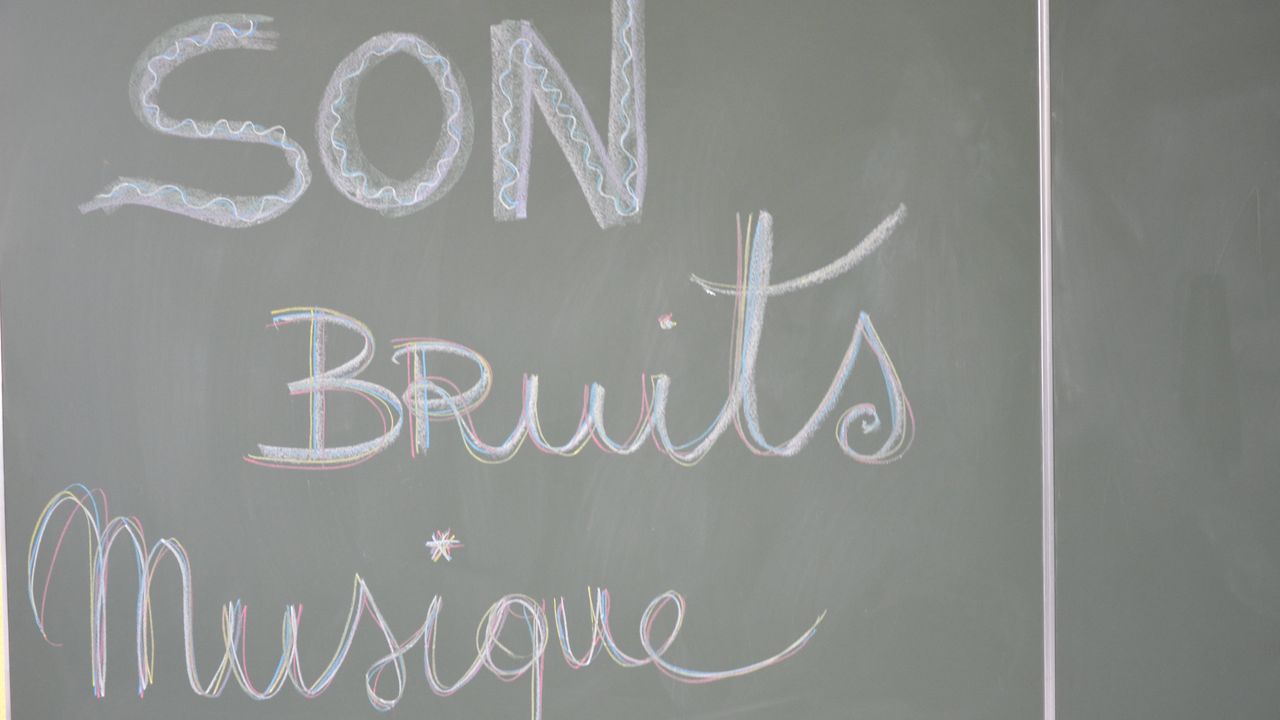 SON
BRuits
Musique